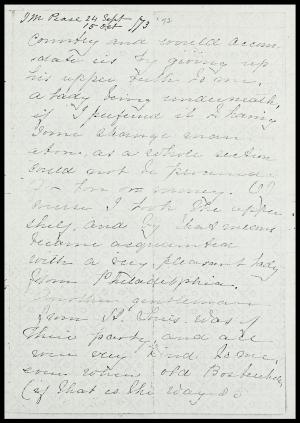 J M Pease 24 Sept
15 Oct /73 '73
Country and would accom-
date us by giving up
his upper berth to me,
a lady being underneath,
if I preferred it to having
some strange man
as a whole section
could not be procured
for love or money. Of
course I took the upper
shelf, and by that means
became acquainted
with a very pleasant lady
from Philadelphia.
Another gentleman
from St. Louis was of
their party, and all
were very kind to me,
even when old
(if that is the way to